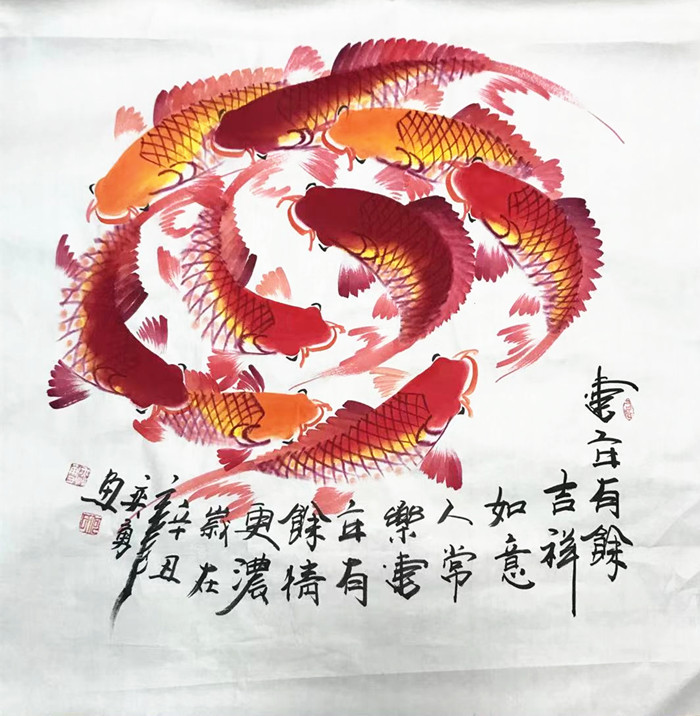 年年有餘
吉祥
如意
人常
樂年
年有
餘情
更濃
歲在
辛丑